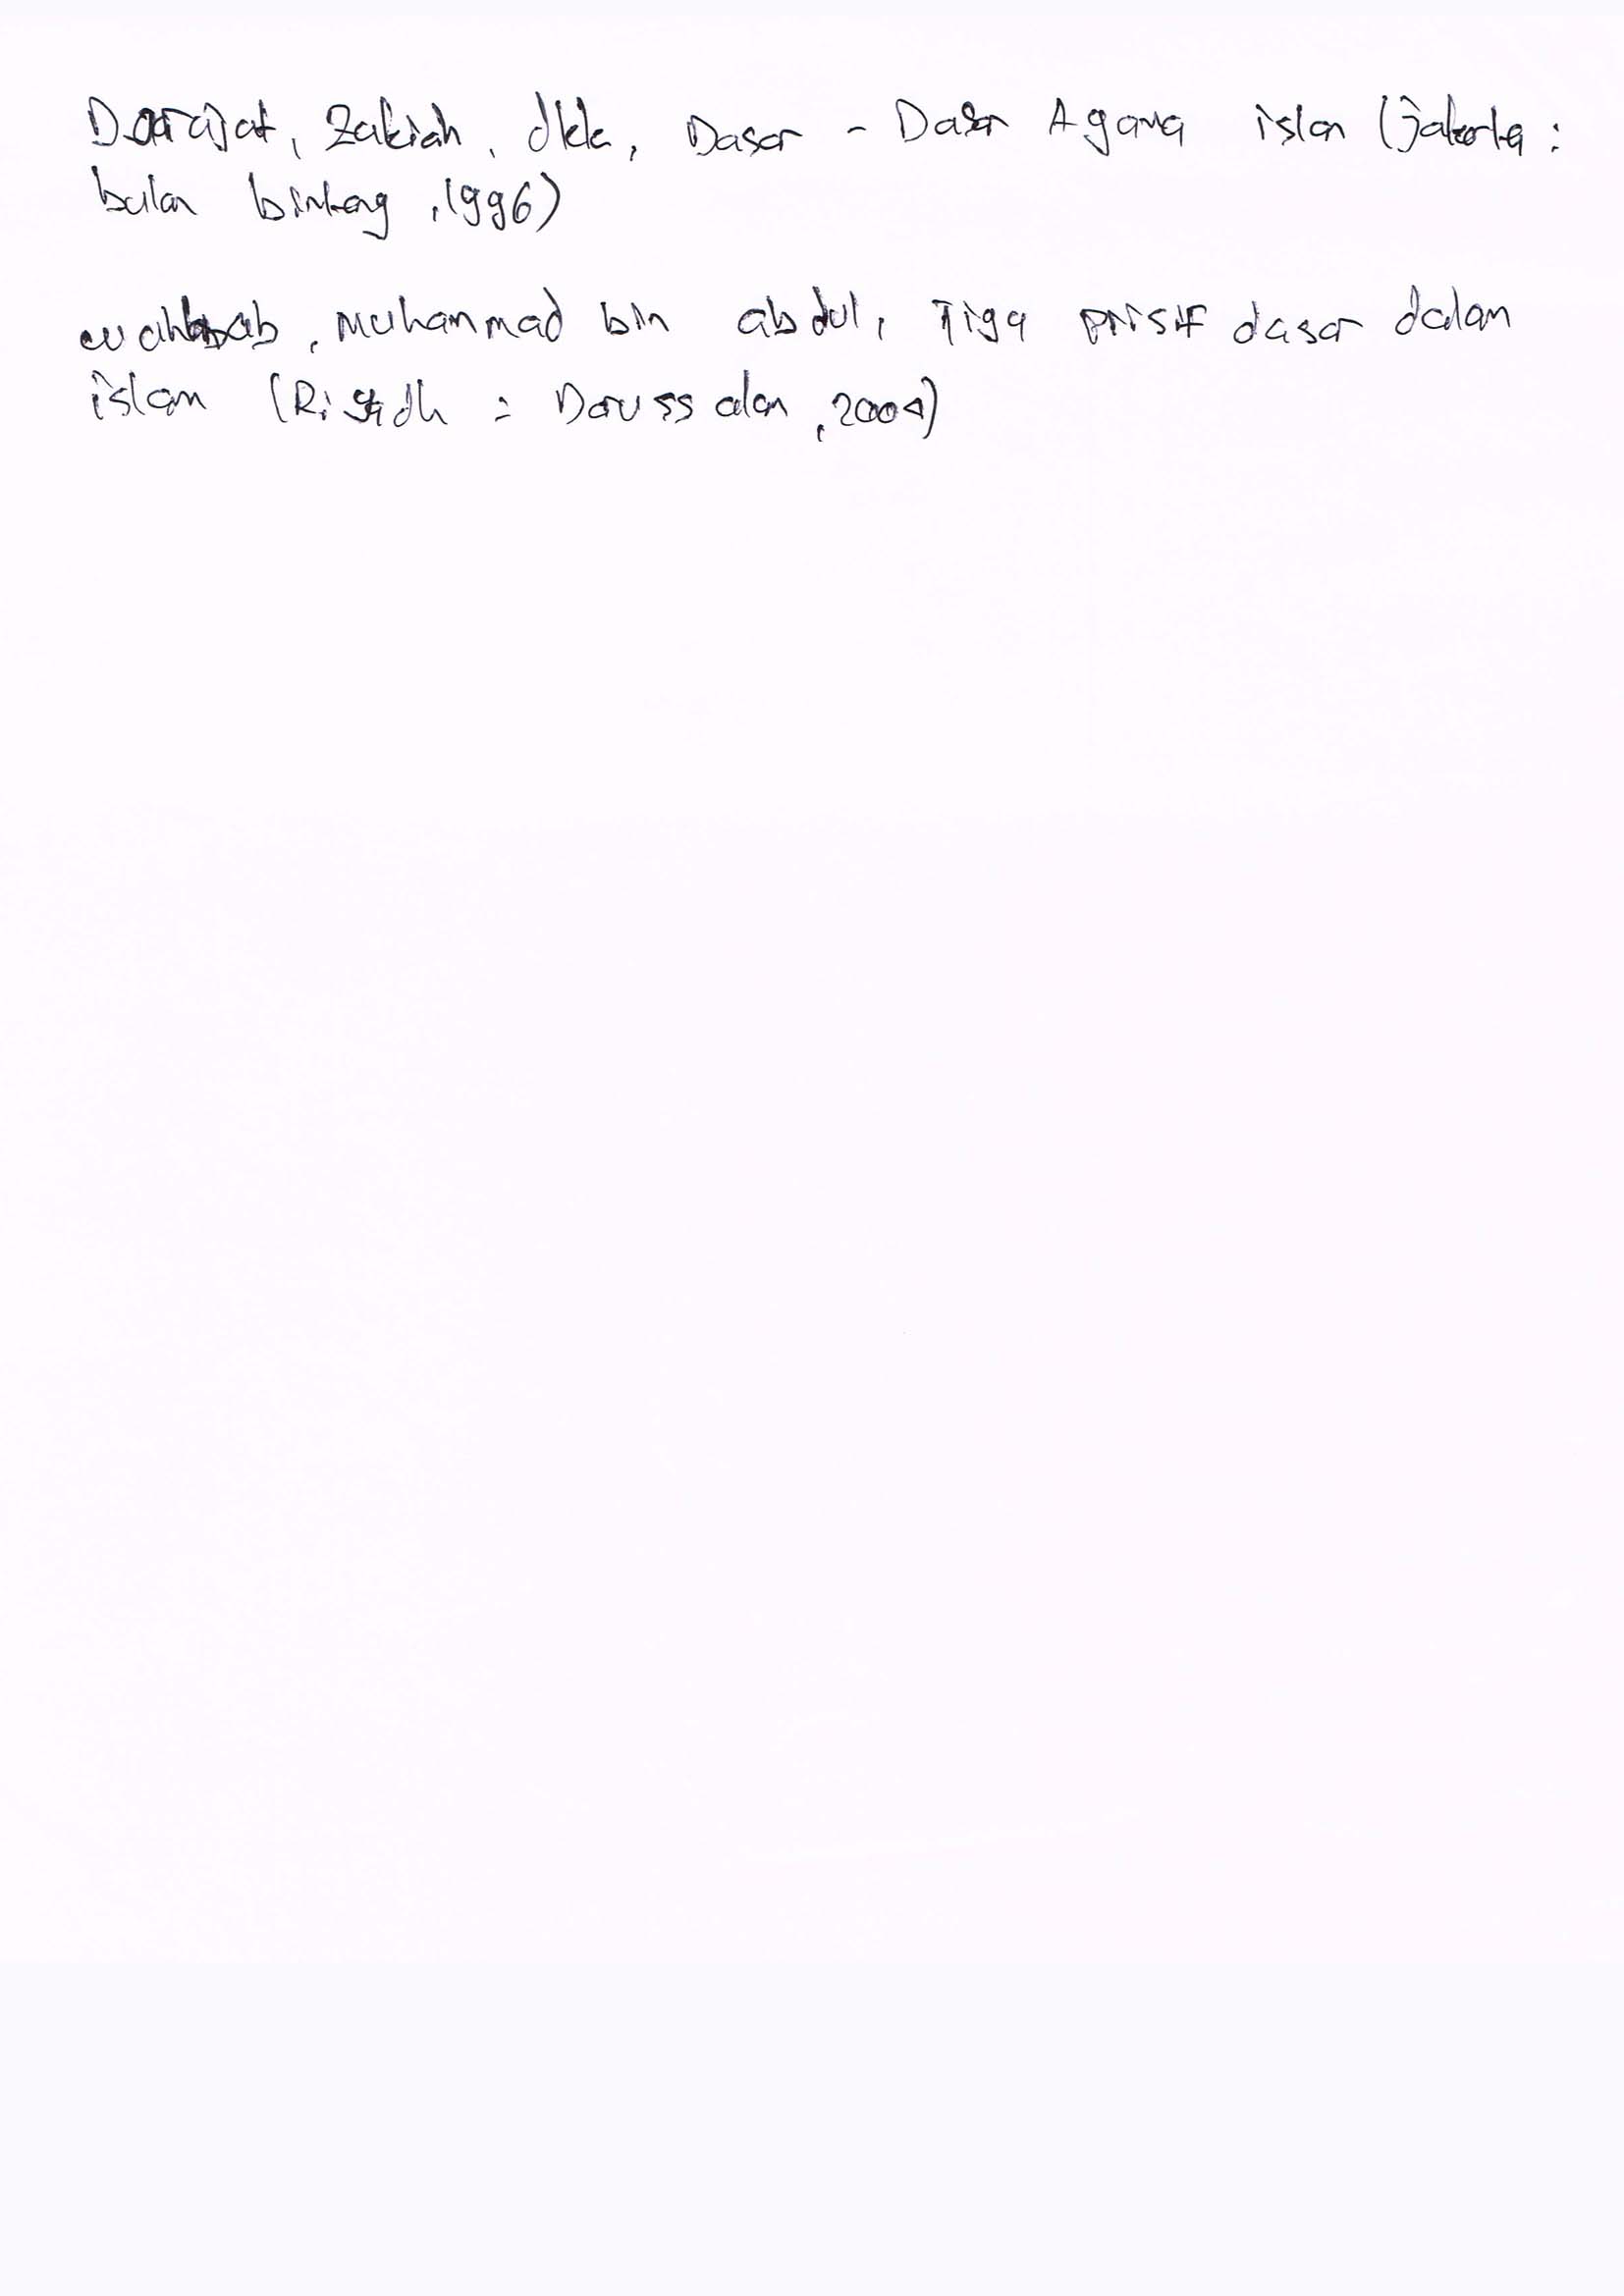 Darajat, Zakiah, dkk, Dasar - Dasar Agama islam (jakarta :
bulan bintang, 1996)
wahbab, Muhammad bin abdul, Tiga prisif dasar dalam
islam (Riyadh : Darussalam, 2004)